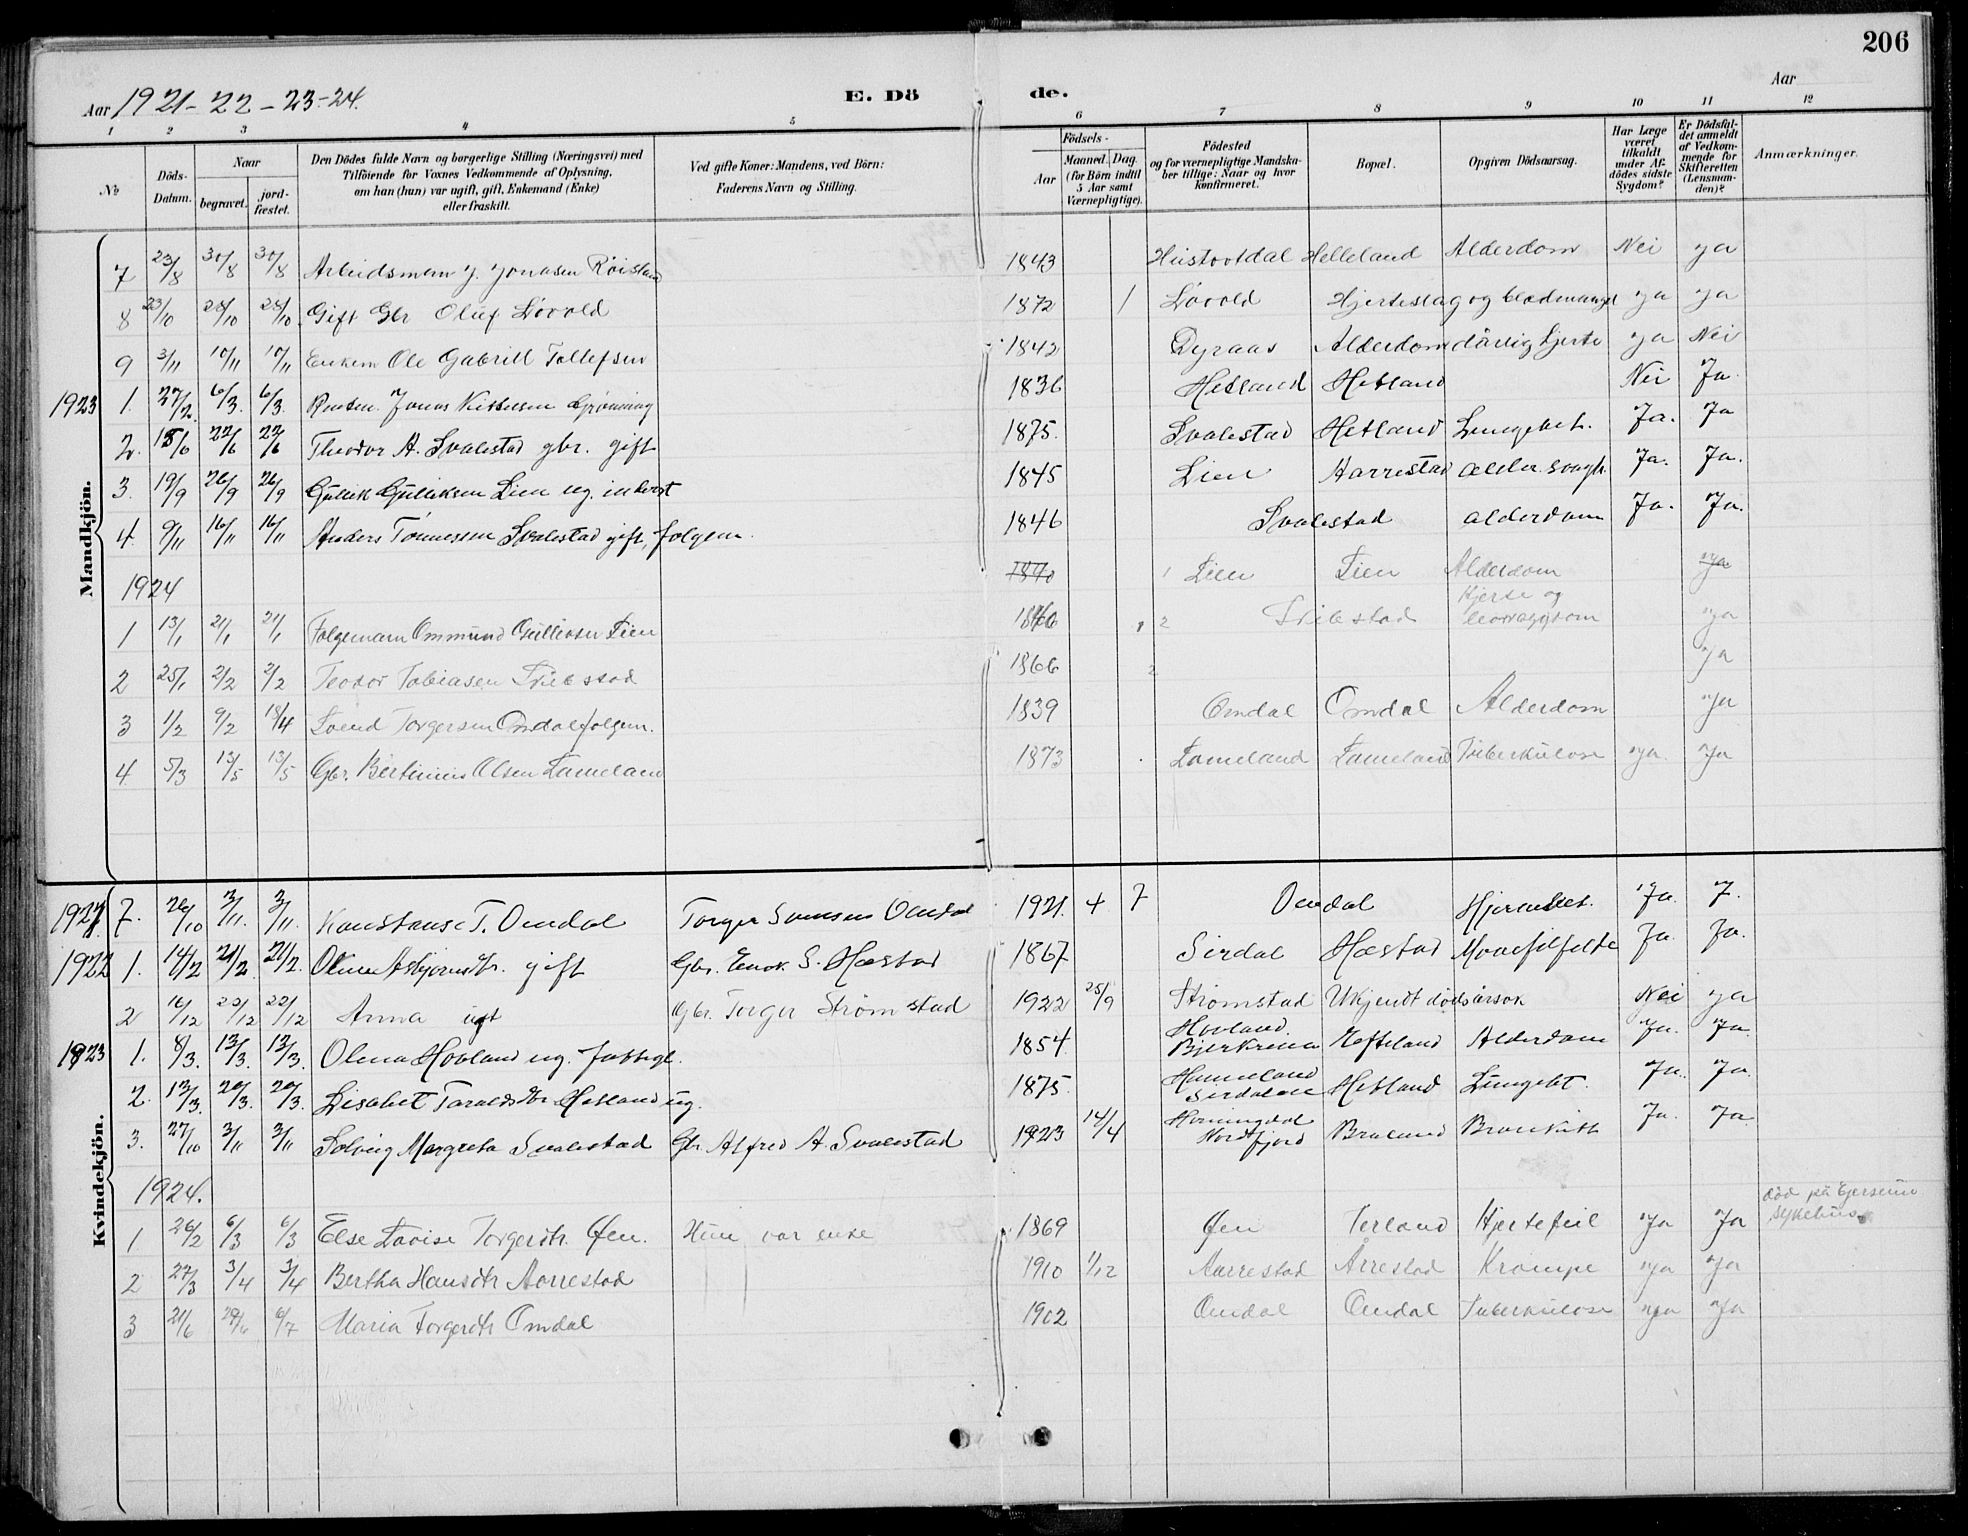 206
Aar 1921-22-23-24. E. Dö de. Aar
1 2 3 4 5 6 7 8 9 10 11 12
No Döds-Datum. Naar begravet. jord-fæstet. Den Dödes fulde Navn og borgerlige Stilling (Næringsvei) med Tilföiende for Voxnes Vedkommende af Oplysning, om han (hun) var ugift, gift, Enkemand (Enke) eller fraskilt. Ved gifte Koner: Mandens, ved Börn: Faderens Navn og Stilling. Födsels- Aar Maaned. Dag. (for Börn indtil 5 Aar samt Værnepligtige). Födested og for værnepligtige Mandskaber tillige: Naar og hvor konfirmeret. Bopæl. Opgiven Dödsaarsag. Har Læge været tilkaldt under Afdödes sidste Sygdom? Er Dödsfaldet anmeldt af Vedkommende for Skifteretten (Lensmanden)? Anmærkninger.
Mandkjön.
7 23/8 30/8 30/8 Arbeidsmann J. Jonasen Röisland 1843 Helleland Alderdom Nei ja
8 23/10 28/10 28/10 Gift Gbr Oluf Lövold 1872 1 Lövold Hjerteslag og blodmangel ja ja
9 3/11 10/11 10/11 Enkem Ole Gabriel Tollefsen 1842 Dyraas Alderdom dårlig hjerte ja Nei
1923 1. 27/2. 6/3. 6/3. Jonas Grönning 1836 Hetland Hetland Nei Ja.
2. 22/6 22/6 Theodor A. Svalestad gbr. gift 1875. Svalestad Hetland Lungebet. Ja. Ja
3. 19/9 26/9 26/9 Gullik Gulliksen Lien ug. inderst 1845 Lien Aarrestad Ja. Ja.
4. 9/11 16/11 16/11 Anders Tönnessen Svalestad gift, folgem. 1846 Svalestad alderdom Ja. Ja.
1924 1840 1 Lien Lien Alderdom ja
1 13/1 21/1 21/1 Folgemann Ommund Gulliksen Lien 2 Hjerte og ja
2 25/1 2/2 2/2 Teodor Tobiasen 1866 2 ja
3 1/2 9/2 18/4 Svend Torgersen Omdal folgem. 1839 Omdal Omdal Alderdom ja
4 5/3 13/5 13/5 Gbr. Bertinius Olsen Lameland 1873 Lameland Lameland Tuberkulose ja. ja
Kvindekjön.
1921. 7. 26/10 3/11. 3/11. Konstanse T. Omdal Torger Svensen Omdal 1921. 4 7 Omdal Hjernebet. Ja. J.
1922 1. 14/2 21/2. 21/2. Olene Asbjornsdtr. gift Gbr. Enok S. Hæstad 1867 Sirdal Hæstad Ja. Ja.
2 16/12 22/12 22/12 Anna ugt Gbr. Torger Strömstad 1922 25/9 Strömstad Ukjendt dødsårsak Nei ja
1923 1. 8/3. 13/3. 13/3. Olena Hovland ug. fattigl. 1854. Hovland. Bjerkreim Efteland Alderdom Ja. Ja.
2. 13/3. 20/3. 20/3. Lisabet Taraldsdtr Hetland ug. 1875. Haneland Sirdalen Hetland Lungebt. Ja. Ja.
3. 27/10 3/11 3/11 Solveig Margreta Svalestad Gbr. Alfred A. Svalestad 1923 14/4 Horningdal Nordfjord Bronkitt Ja. Ja
1924.
1 26/2 6/3 6/3 Else Lovise Torgerdtr. Øen. Hun var enke 1869 Øen Terland Hjertefeil Ja Ja död på Egersund sykehus.
2 27/3 3/4 3/4 Bertha Hansdtr Aarrestad 1910 1/12 Aarrestad Årrestad Krampe ja ja
3 21/6 29/6 6/7 Maria Torgerdtr Omdal 1902 Omdal Omdal Tuberkulose ja ja